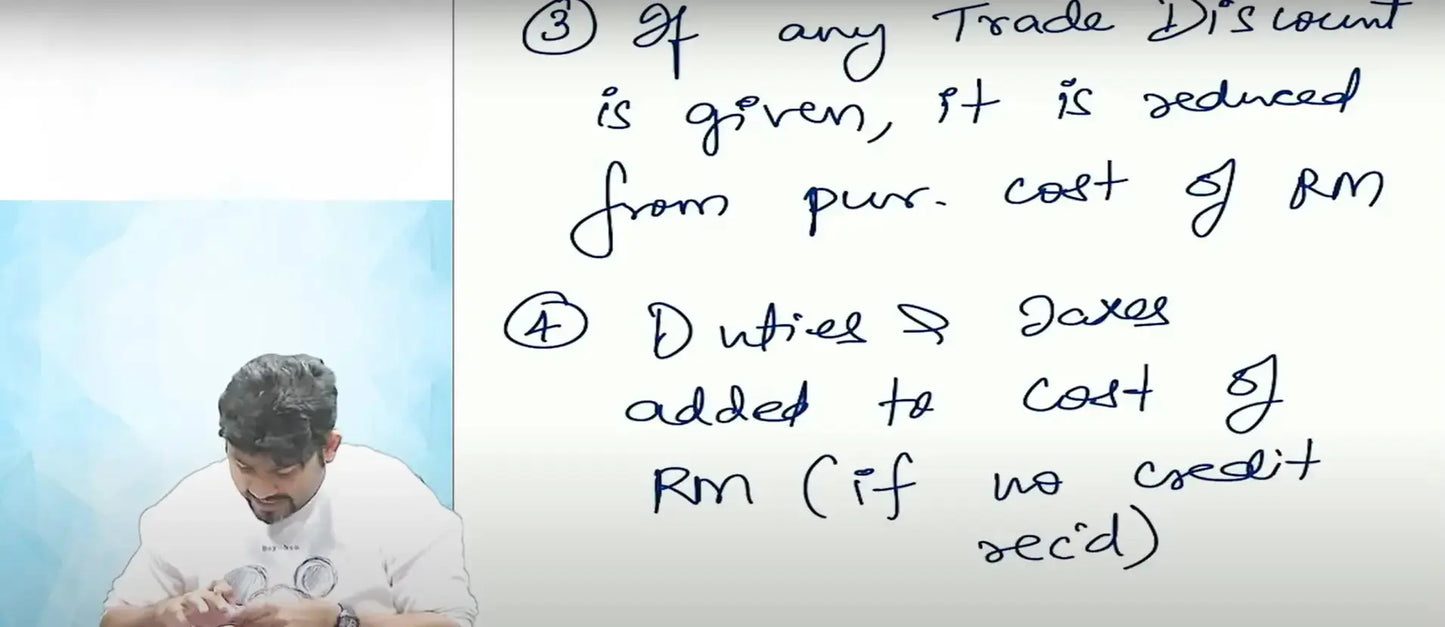 ③ If any Trade Discount
is given, it is reduced
from pur. cost of RM
④ Duties & Taxes
added to cost of
RM (if no credit
rec'd)